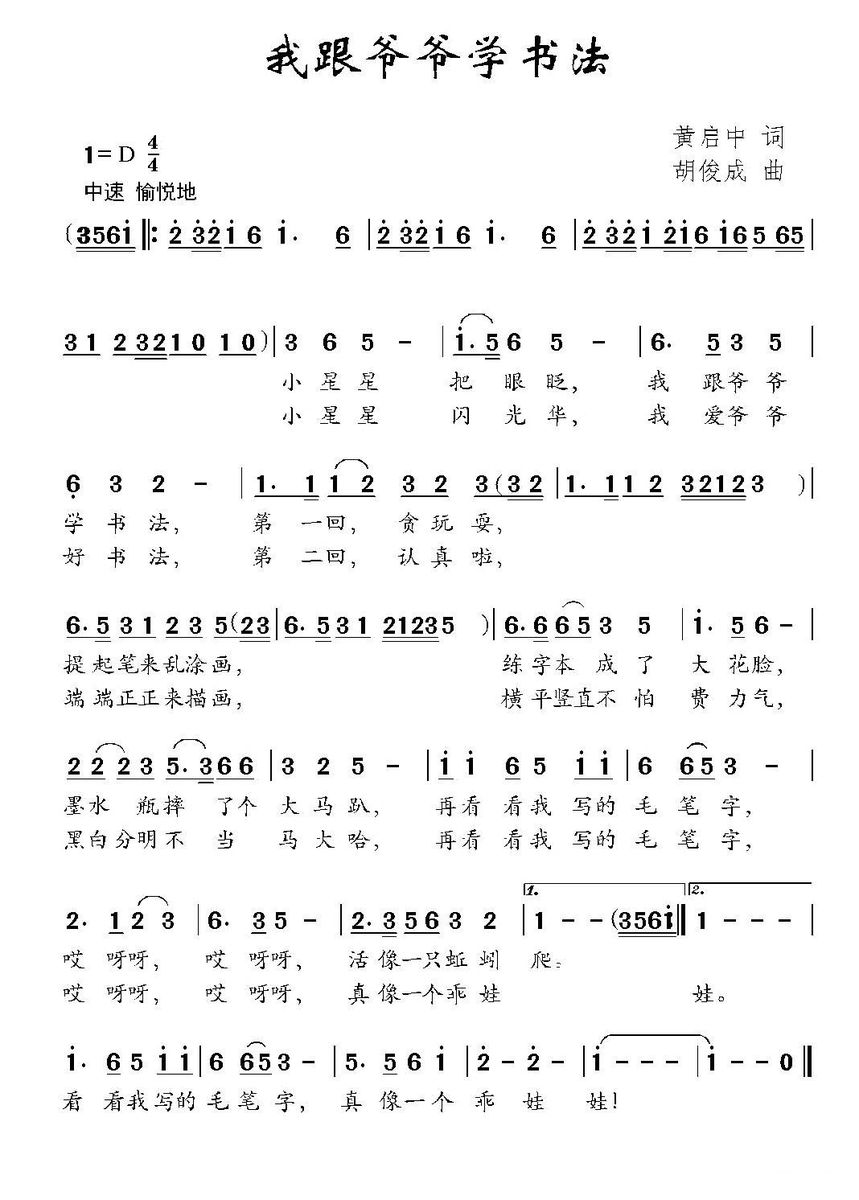 我跟爷爷学书法
黄启中 词
1=D 4/4
胡俊成 曲
中速 愉悦地
(3561̇ ‖: 2̇ 3̇2̇1̇ 6 1̇· 6 | 2̇ 3̇2̇1̇ 6 1̇· 6 | 2̇ 3̇2̇1̇ 2̇1̇6 1̇65 65 |
31 2321 0 1 0) | 3 6 5 - | 1̇·5 6 5 - | 6· 5 3 5 |
小星星 把眼眨, 我 跟爷爷
小星星 闪光华, 我 爱爷爷
6̣ 3 2 - | 1· 1 1 2 3 2 3 (32 | 1· 11 2 32123 ) |
学书法, 第一回, 贪玩耍,
好书法, 第二回, 认真啦,
6·5 3 1 2 3 5 (23 | 6·531 21235 ) | 6·6 65 3 5 | 1̇· 5 6 - |
提起笔来乱涂画, 练字本成了 大花脸,
端端正正来描画, 横平竖直不怕 费力气,
2 2 2 3 5·3 6 6 | 3 2 5 - | 1̇ 1̇ 6 5 1̇ 1̇ | 6 65 3 - |
墨水 瓶摔 了个 大马趴, 再看看我写的毛笔字,
黑白分明不当 马大哈, 再看看我写的毛笔字,
1. 2.
2· 1 2 3 | 6· 3 5 - | 2·3 5 6 3 2 | 1 - - (3561̇ :‖ 1 - - |
哎呀呀, 哎呀呀, 活像一只蚯蚓 爬。
哎呀呀, 哎呀呀, 真像一个乖娃 娃。
1̇· 6 5 1̇ 1̇ | 6 65 3 - | 5· 5 6 1̇ | 2̇ - 2̇ - | 1̇ - - - | 1̇ - - 0 ‖
看看我写的毛笔字, 真像一个乖娃娃!